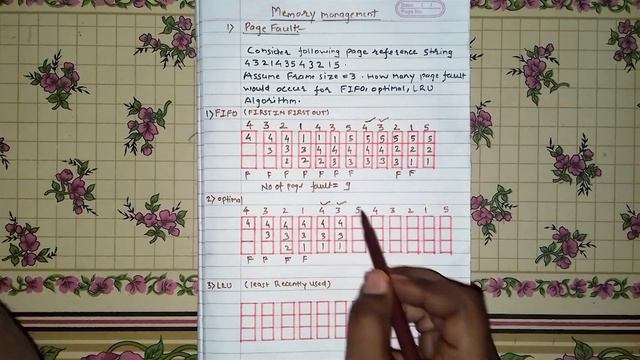 Memory management
Date: / /
Page No.
1) Page Fault:-
Consider following page reference string
4 3 2 1 4 3 5 4 3 2 1 5 .
Assume Frame size = 3 . How many page fault
would occur for FIFO, optimal, LRU
Algorithm.
1) FIFO (FIRST IN FIRST OUT)
4 3 2 1 4 3 5 4 3 2 1 5
4 4 4 1 1 1 5 5 5 5 5 5
3 3 3 4 4 4 4 4 2 2 2
2 2 2 3 3 3 3 3 1 1
F F F F F F F F F
No of page fault = 9
2) optimal
4 3 2 1 4 3 5 4 3 2 1 5
4 4 4 4 4 4
3 3 3 3 3
2 1 1 1
F F F F
3) LRU (least Recently Used)